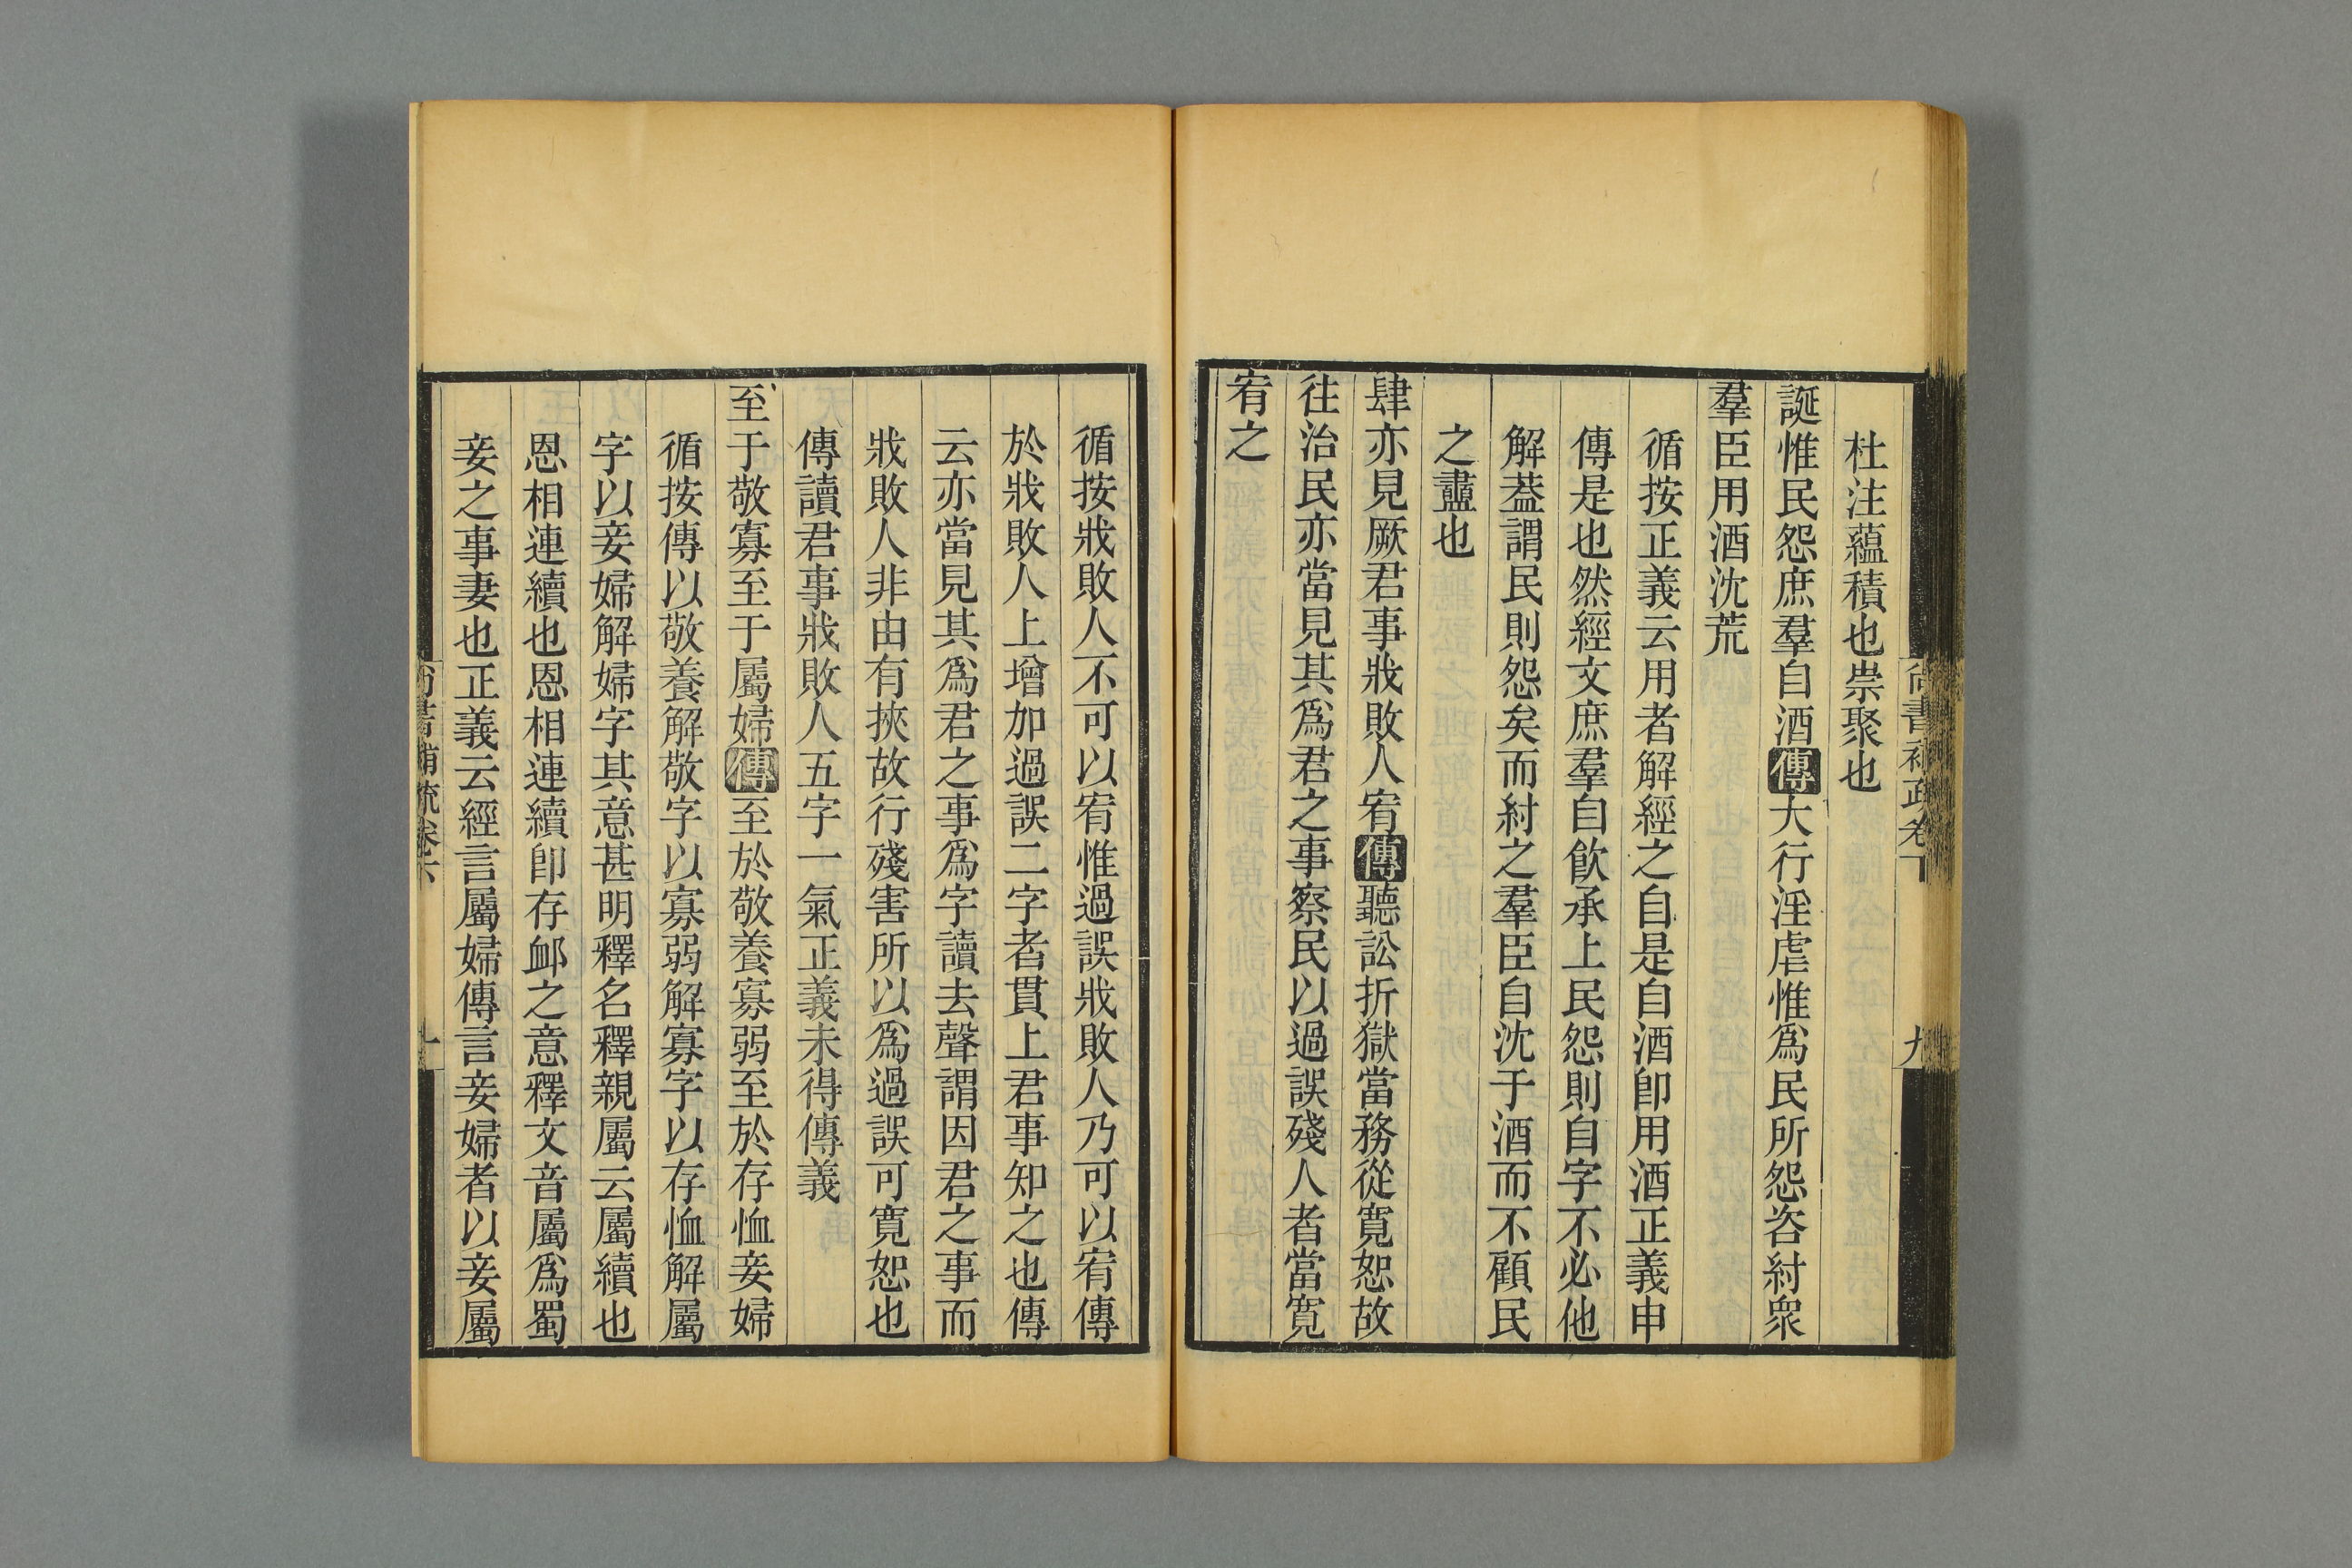 杜注蘊積也崇聚也
誕惟民怨庶羣自酒傳大行淫虐惟爲民所怨咨紂衆
羣臣用酒沈荒
循按正義云用者解經之自是自酒卽用酒正義申
傳是也然經文庶羣自飮承上民怨則自字不必他
解葢謂民則怨矣而紂之羣臣自沈于酒而不顧民
之衋也
肆亦見厥君事戕敗人宥傳聽訟折獄當務從寬恕故
往治民亦當見其爲君之事察民以過誤殘人者當寬
宥之
尚書補疏卷下
九
循按戕敗人不可以宥惟過誤戕敗人乃可以宥傳
於戕敗人上增加過誤二字者貫上君事知之也傳
云亦當見其爲君之事爲字讀去聲謂因君之事而
戕敗人非由有挾故行殘害所以爲過誤可寬恕也
傳讀君事戕敗人五字一氣正義未得傳義
至于敬寡至于屬婦傳至於敬養寡弱至於存恤妾婦
循按傳以敬養解敬字以寡弱解寡字以存恤解屬
字以妾婦解婦字其意甚明釋名釋親屬云屬續也
恩相連續也恩相連續卽存䘏之意釋文音屬爲蜀
妾之事妻也正義云經言屬婦傳言妾婦者以妾屬